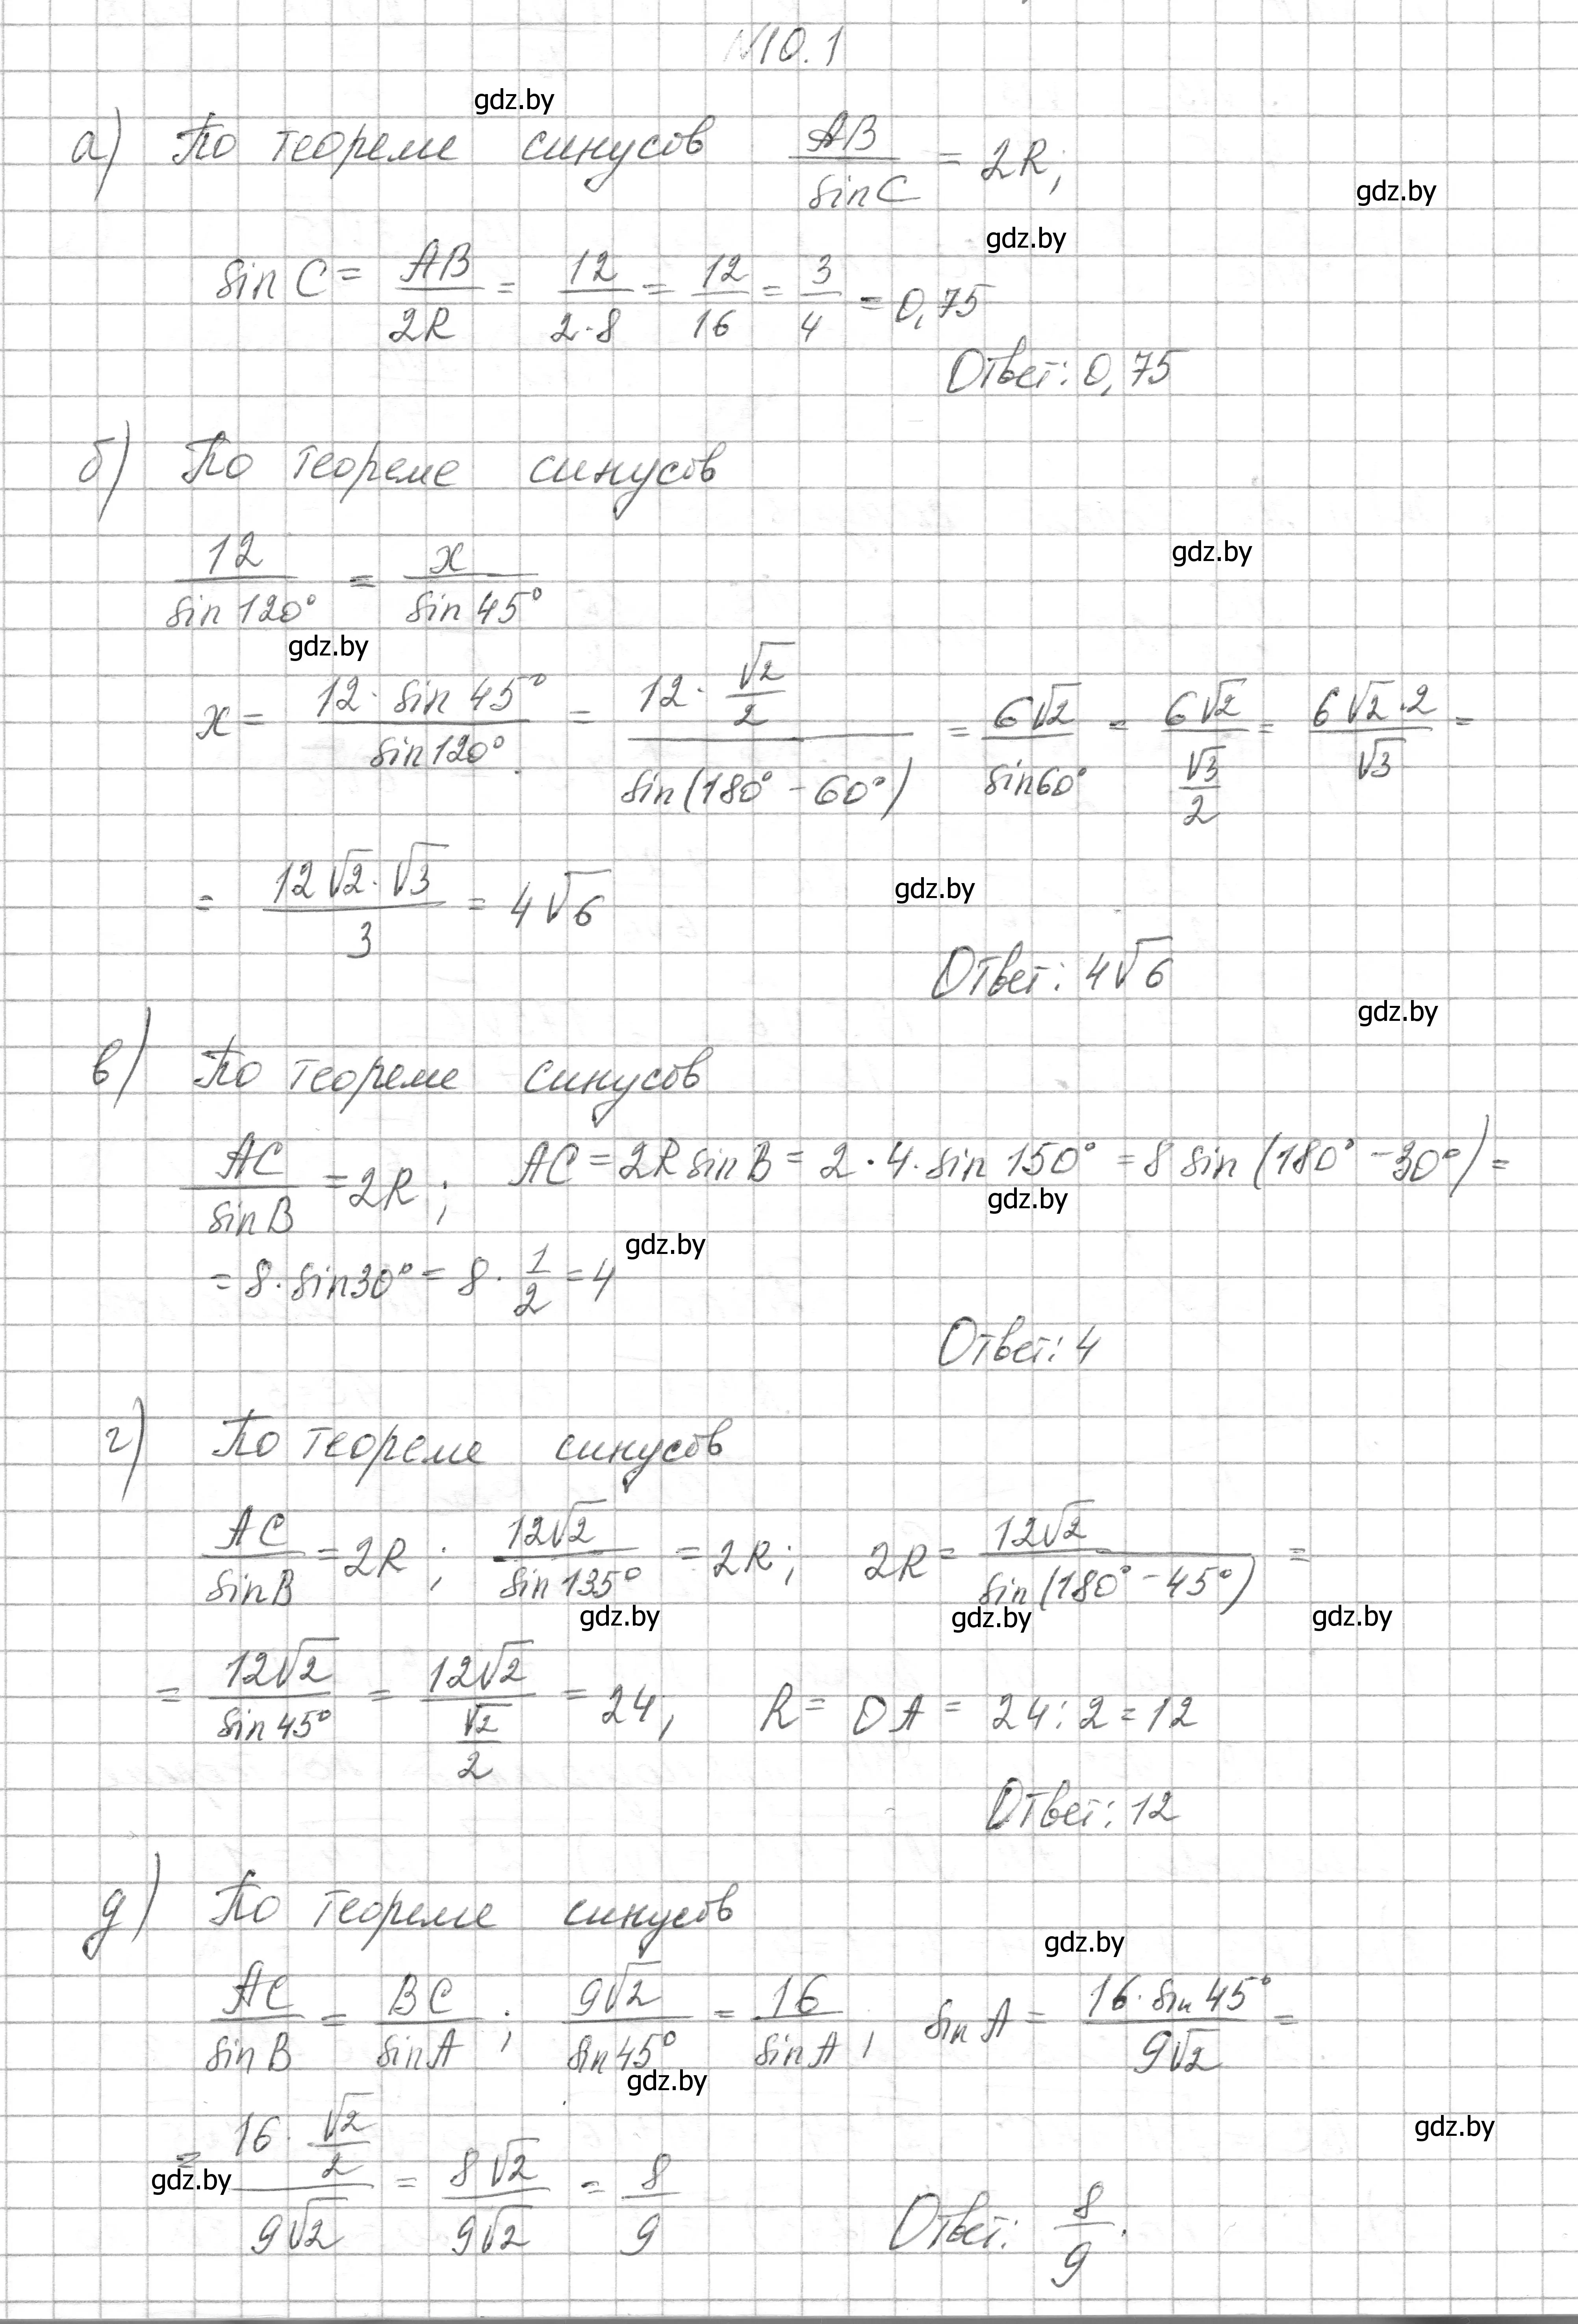 №10.1
gdz.by
а) По теореме синусов AB/sin C = 2R;
gdz.by
gdz.by
sin C = AB/2R = 12/2·8 = 12/16 = 3/4 = 0,75
Ответ: 0,75
б) По теореме синусов
12/sin 120° = x/sin 45°
gdz.by
gdz.by
x = 12·sin 45°/sin 120° = 12·√2/2/sin(180° - 60°) = 6√2/sin 60° = 6√2/√3/2 = 6√2·2/√3 =
= 12√2·√3/3 = 4√6
gdz.by
Ответ: 4√6
gdz.by
в) По теореме синусов
AC/sin B = 2R; AC = 2R sin B = 2·4·sin 150° = 8 sin(180° - 30°) =
gdz.by
gdz.by
= 8·sin 30° = 8·1/2 = 4
Ответ: 4
г) По теореме синусов
AC/sin B = 2R; 12√2/sin 135° = 2R; 2R = 12√2/sin(180° - 45°) =
gdz.by gdz.by gdz.by
= 12√2/sin 45° = 12√2/√2/2 = 24; R = OA = 24:2 = 12
Ответ: 12
д) По теореме синусов
gdz.by
AC/sin B = BC/sin A; 9√2/sin 45° = 16/sin A; sin A = 16·sin 45°/9√2 =
gdz.by
gdz.by
= 16·√2/2/9√2 = 8√2/9√2 = 8/9
gdz.by
Ответ: 8/9.